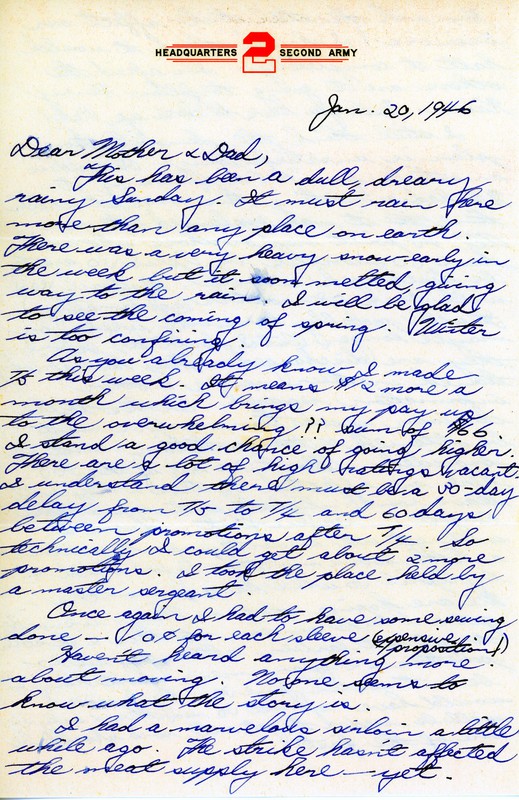 HEADQUARTERS 2 SECOND ARMY
Jan. 20, 1946
Dear Mother & Dad,
This has been a dull, dreary
rainy Sunday. It must rain here
more than any place on earth.
There was a very heavy snow early in
the week but it soon melted, giving
way to the rain. I will be glad
to see the coming of spring. Winter
is too confining.
As you already know, I made
T/5 this week. It means $12 more a
month which brings my pay up
to the overwhelming ?? sum of $66.
I stand a good chance of going higher.
There are a lot of high ratings vacant.
I understand there must be a 30-day
delay from T/5 to T/4 and 60 days
between promotions after T/4. So
technically I could get about 2 more
promotions. I took the place held by
a master sergeant.
Once again I had to have some sewing
done — 10¢ for each sleeve (expensive
proposition!)
Haven't heard anything more
about moving. No one seems to
know what the story is.
I had a marvelous sirloin a little
while ago. The strike hasn't affected
the meat supply here — yet.